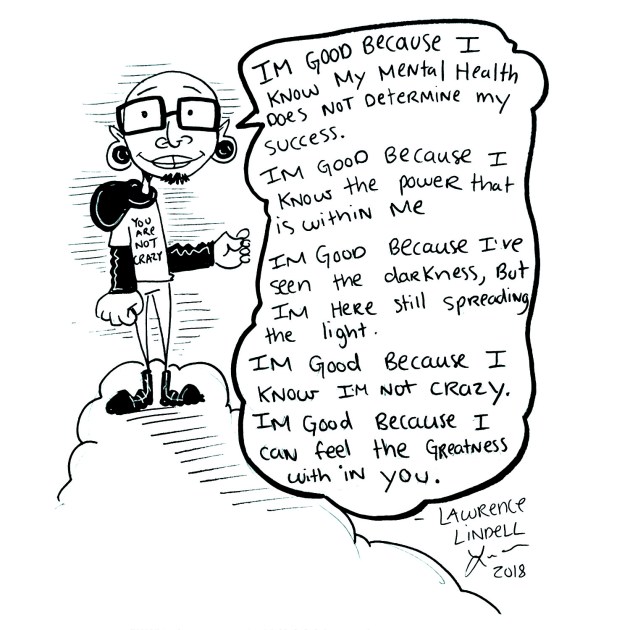 YOU
ARE
NOT
CRAZY
IM GOOD BECAUSE I
KNOW MY MENTAL HEALTH
DOES NOT DETERMINE MY
SUCCESS.
IM GOOD BECAUSE I
KNOW THE POWER THAT
IS WITHIN ME
IM GOOD BECAUSE I'VE
SEEN THE DARKNESS, BUT
IM HERE STILL SPREADING
THE LIGHT.
IM GOOD BECAUSE I
KNOW IM NOT CRAZY.
IM GOOD BECAUSE I
CAN FEEL THE GREATNESS
WITH IN YOU.
- LAWRENCE
LINDELL
2018